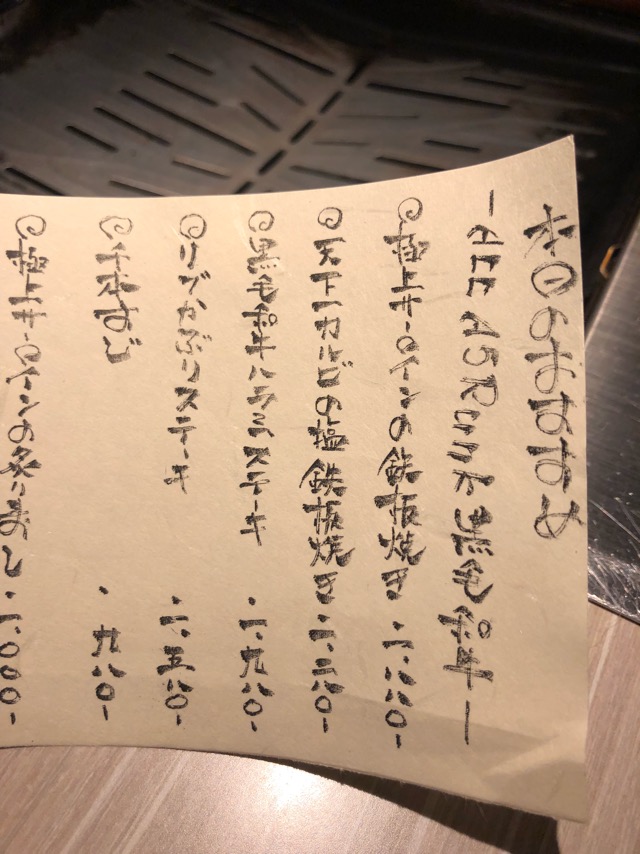 本日のおすすめ
ーALL A5ランク黒毛和牛ー
◎極上サーロインの鉄板焼き・一、八八〇ー
◎天下一カルビの塩鉄板焼き・一、三八〇ー
◎黒毛和牛ハラミステーキ・一、九八〇ー
◎リブかぶりステーキ・一、五八〇ー
◎千本すじ・九八〇ー
◎極上サーロインの炙り寿し・一、〇〇〇ー